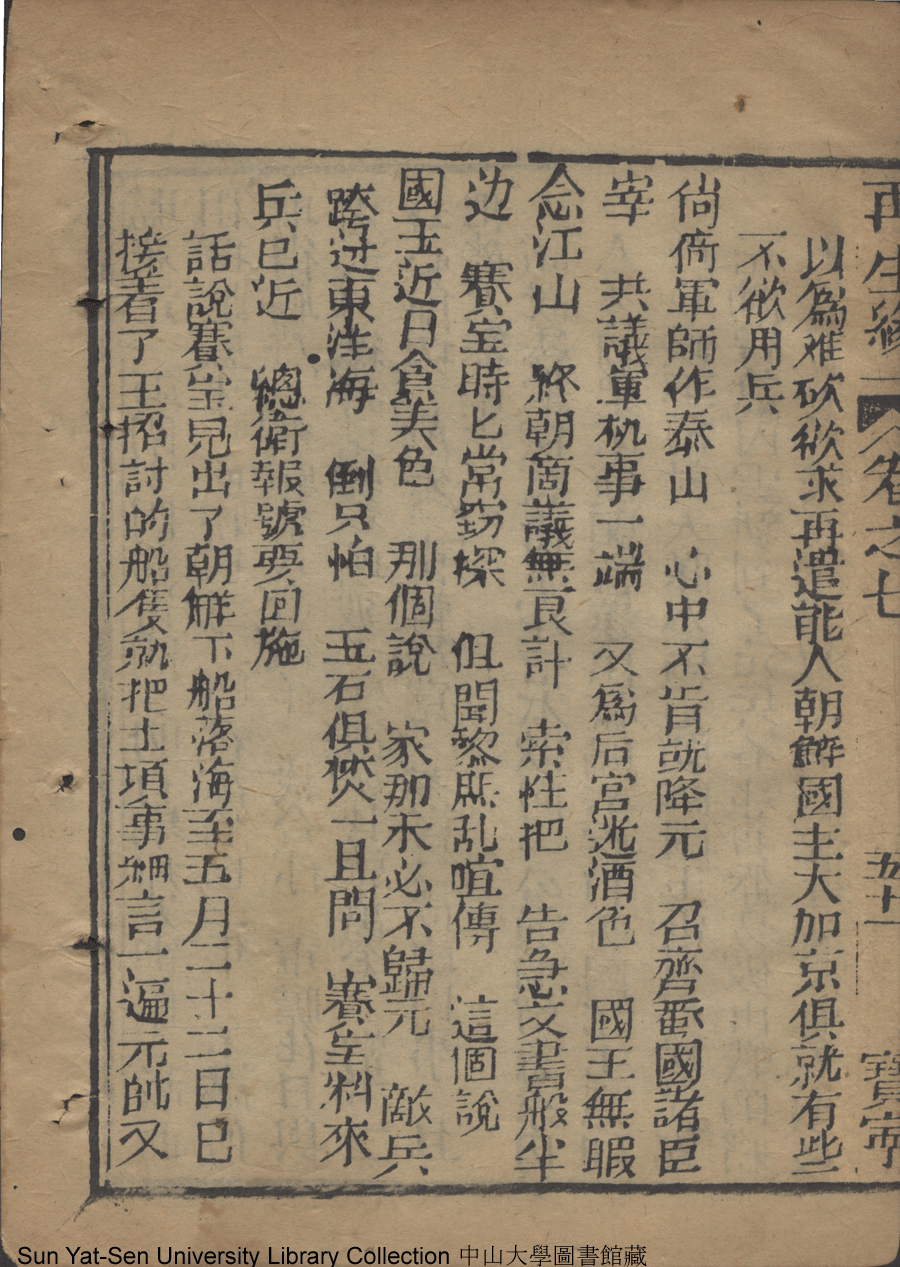 再生緣 卷之七 五十一 寶寧
以為难砍欲求再遣能人朝觧國主大加京俱就有些
不欲用兵
尙倚軍師作泰山 心中不肯就降元 召齊蚕國諸臣
宰 共議軍机事一端 又為后宫迷酒色 國王無暇
念江山 終朝啇議無良計 索性把 告急文書般半
边 賽宝時匕常窃探 但聞黎庶乱喧傳 這個說
國王近日貪美色 那個說 家邦未必不歸元 敵兵
跨过東洋海 倒只怕 玉石俱焚一旦間 賽宝料來
兵已近 總衛報號要回施
話說賽宝見出了朝觧下船落海至五月二十二日已
接着了王招討的船隻就把土項事細言一遍元帥又
Sun Yat-Sen University Library Collection 中山大學圖書館藏